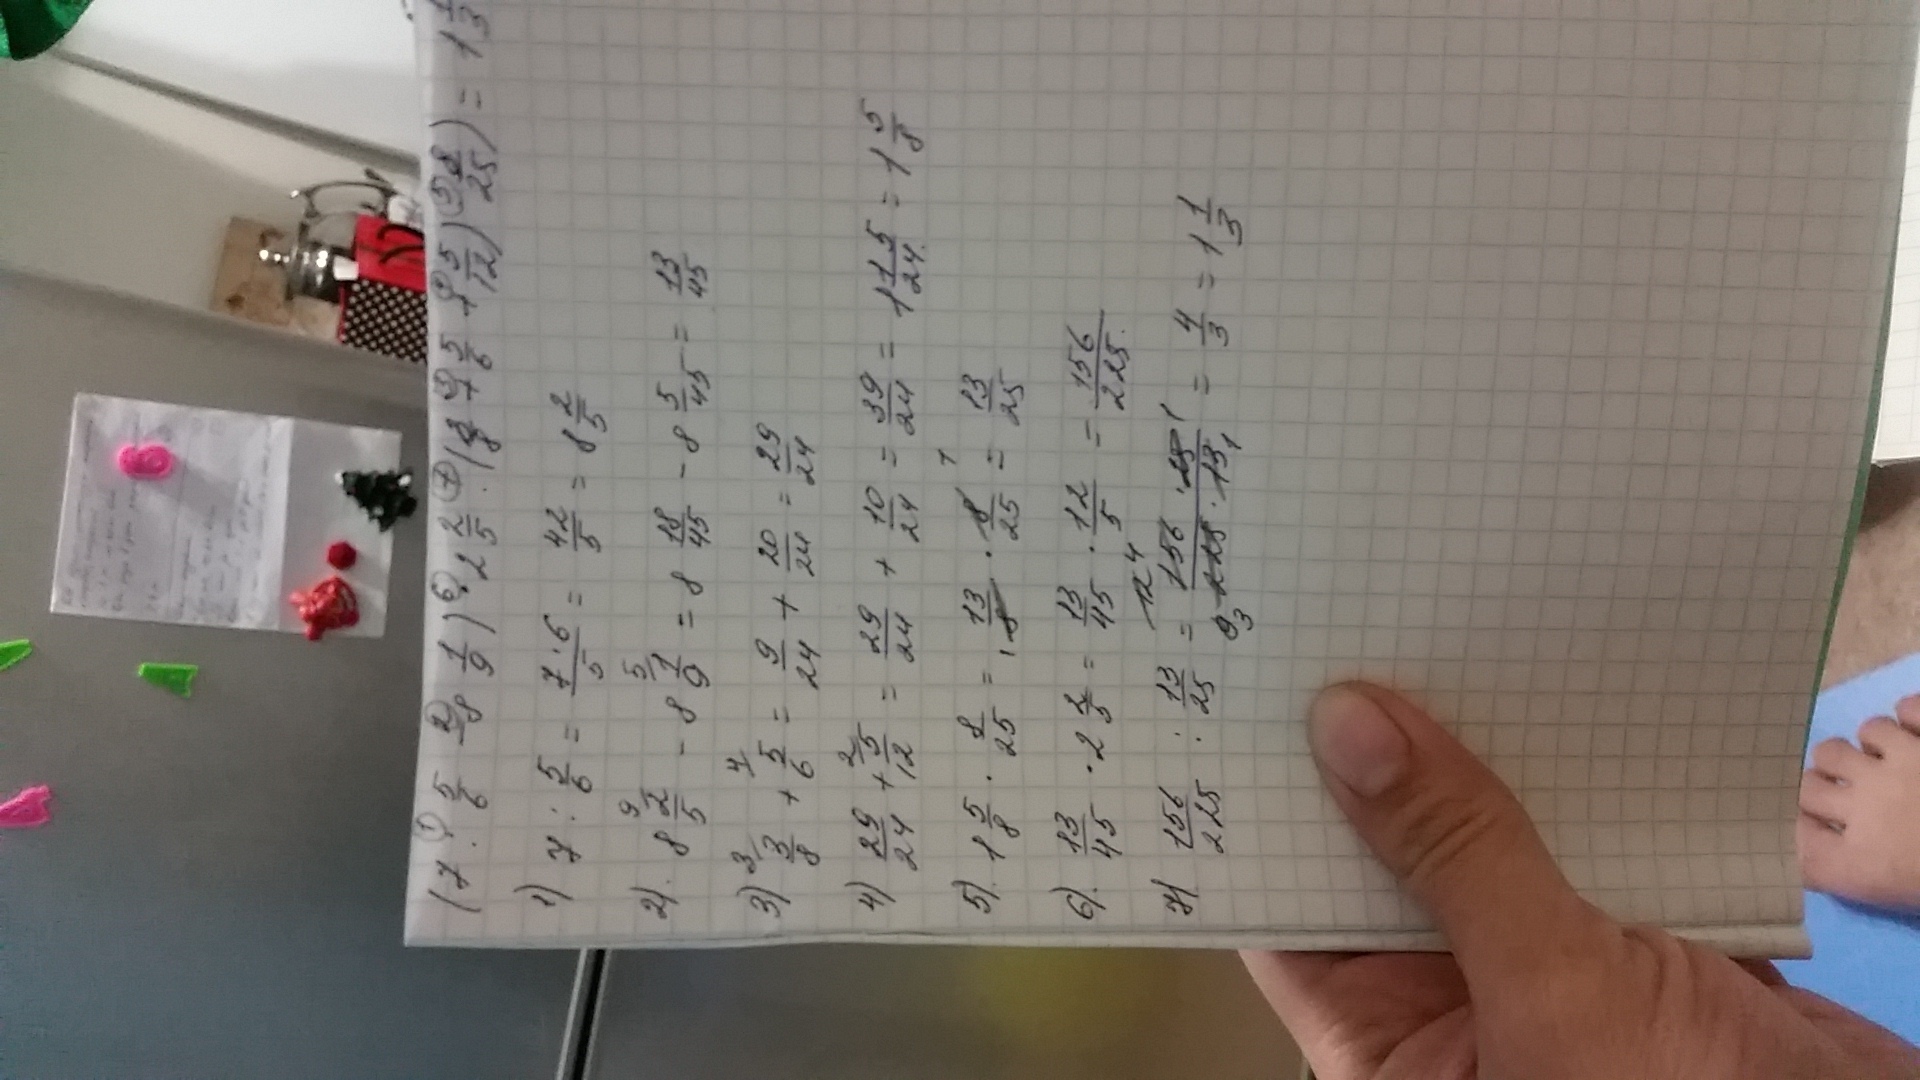 (7 : 5/6 - 8 1/9) · 2 2/5 : ((3/8 + 5/6 + 5/12) · 8/25) = 1 1/3
1) 7 : 5/6 = 7·6/5 = 42/5 = 8 2/5
2) 8 2/5 - 8 1/9 = 8 18/45 - 8 5/45 = 13/45
3) 3/8 + 5/6 = 9/24 + 20/24 = 29/24
4) 29/24 + 5/12 = 29/24 + 10/24 = 39/24 = 1 15/24 = 1 5/8
5) 1 5/8 · 8/25 = 13/8 · 8/25 = 13/25
6) 13/45 · 2 2/5 = 13/45 · 12/5 = 156/225
7) 156/225 : 13/25 = 156·25/225·13 = 4/3 = 1 1/3